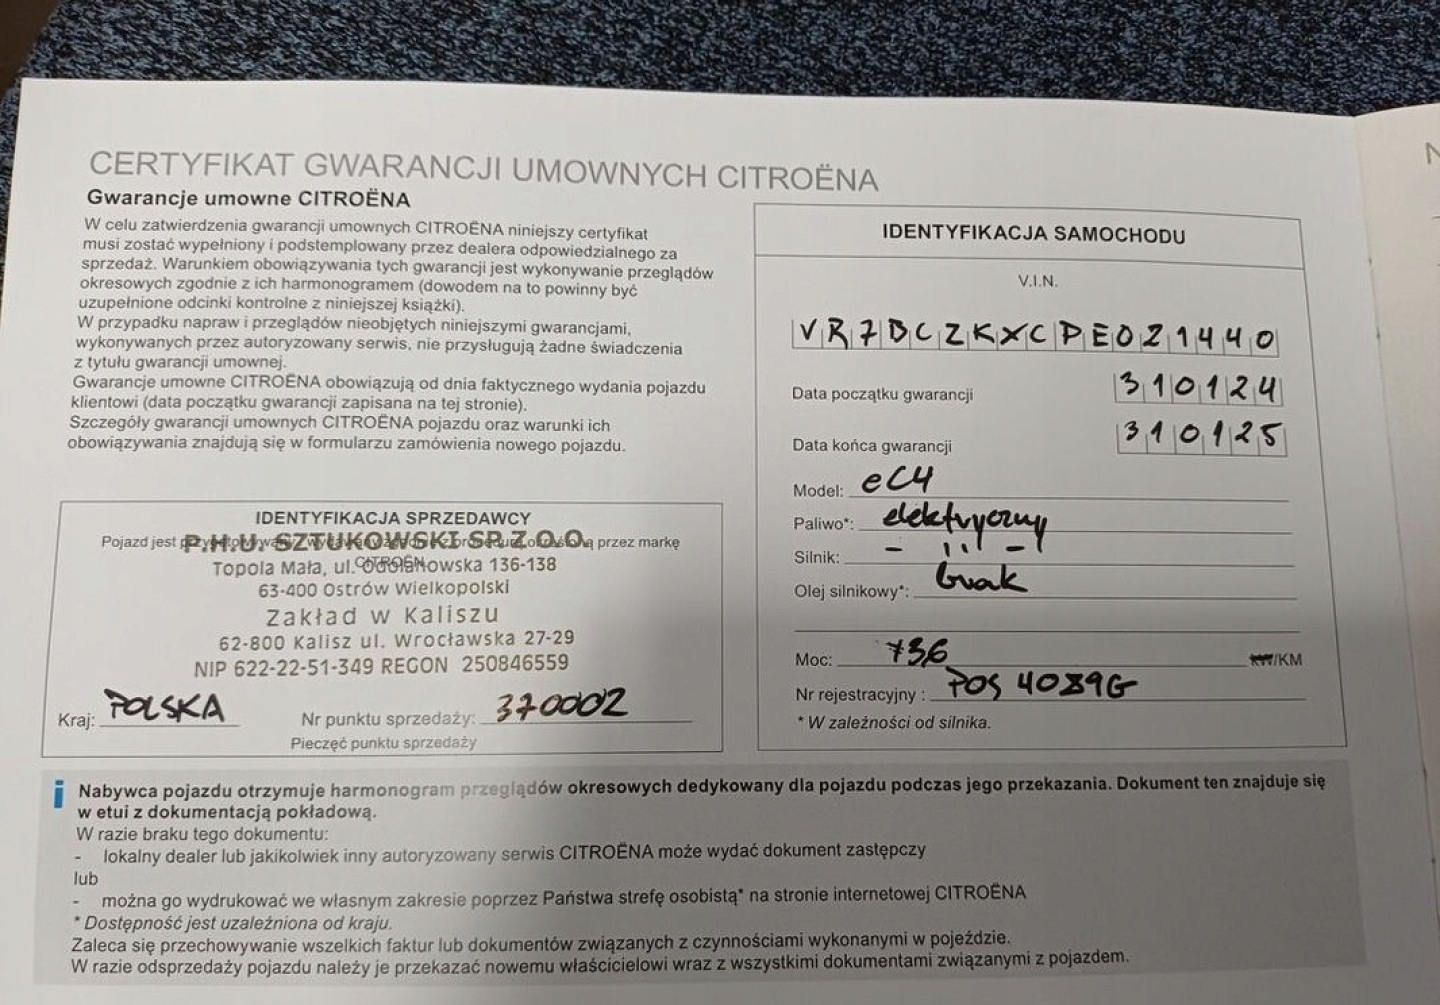 CERTYFIKAT GWARANCJI UMOWNYCH CITROËNA
Gwarancje umowne CITROËNA
W celu zatwierdzenia gwarancji umownych CITROËNA niniejszy certyfikat
musi zostać wypełniony i podstemplowany przez dealera odpowiedzialnego za
sprzedaż. Warunkiem obowiązywania tych gwarancji jest wykonywanie przeglądów
okresowych zgodnie z ich harmonogramem (dowodem na to powinny być
uzupełnione odcinki kontrolne z niniejszej książki).
W przypadku napraw i przeglądów nieobjętych niniejszymi gwarancjami,
wykonywanych przez autoryzowany serwis, nie przysługują żadne świadczenia
z tytułu gwarancji umownej.
Gwarancje umowne CITROËNA obowiązują od dnia faktycznego wydania pojazdu
klientowi (data początku gwarancji zapisana na tej stronie).
Szczegóły gwarancji umownych CITROËNA pojazdu oraz warunki ich
obowiązywania znajdują się w formularzu zamówienia nowego pojazdu.
IDENTYFIKACJA SPRZEDAWCY
Pojazd jest przez markę
CITROËN
P.H.U. SZTUKOWSKI SP. Z O.O.
Topola Mała, ul. Odolanowska 136-138
63-400 Ostrów Wielkopolski
Zakład w Kaliszu
62-800 Kalisz ul. Wrocławska 27-29
NIP 622-22-51-349 REGON 250846559
Kraj: POLSKA Nr punktu sprzedaży: 370002
Pieczęć punktu sprzedaży
IDENTYFIKACJA SAMOCHODU
V.I.N.
VR7BCZKXCPE021440
Data początku gwarancji 310124
Data końca gwarancji 310125
Model: eC4
Paliwo*: elektryczny
Silnik: - -
Olej silnikowy*: brak
Moc: 136 kW/KM
Nr rejestracyjny : POS 4089G
* W zależności od silnika.
i Nabywca pojazdu otrzymuje harmonogram przeglądów okresowych dedykowany dla pojazdu podczas jego przekazania. Dokument ten znajduje się
w etui z dokumentacją pokładową.
W razie braku tego dokumentu:
- lokalny dealer lub jakikolwiek inny autoryzowany serwis CITROËNA może wydać dokument zastępczy
lub
- można go wydrukować we własnym zakresie poprzez Państwa strefę osobistą* na stronie internetowej CITROËNA
* Dostępność jest uzależniona od kraju.
Zaleca się przechowywanie wszelkich faktur lub dokumentów związanych z czynnościami wykonanymi w pojeździe.
W razie odsprzedaży pojazdu należy je przekazać nowemu właścicielowi wraz z wszystkimi dokumentami związanymi z pojazdem.